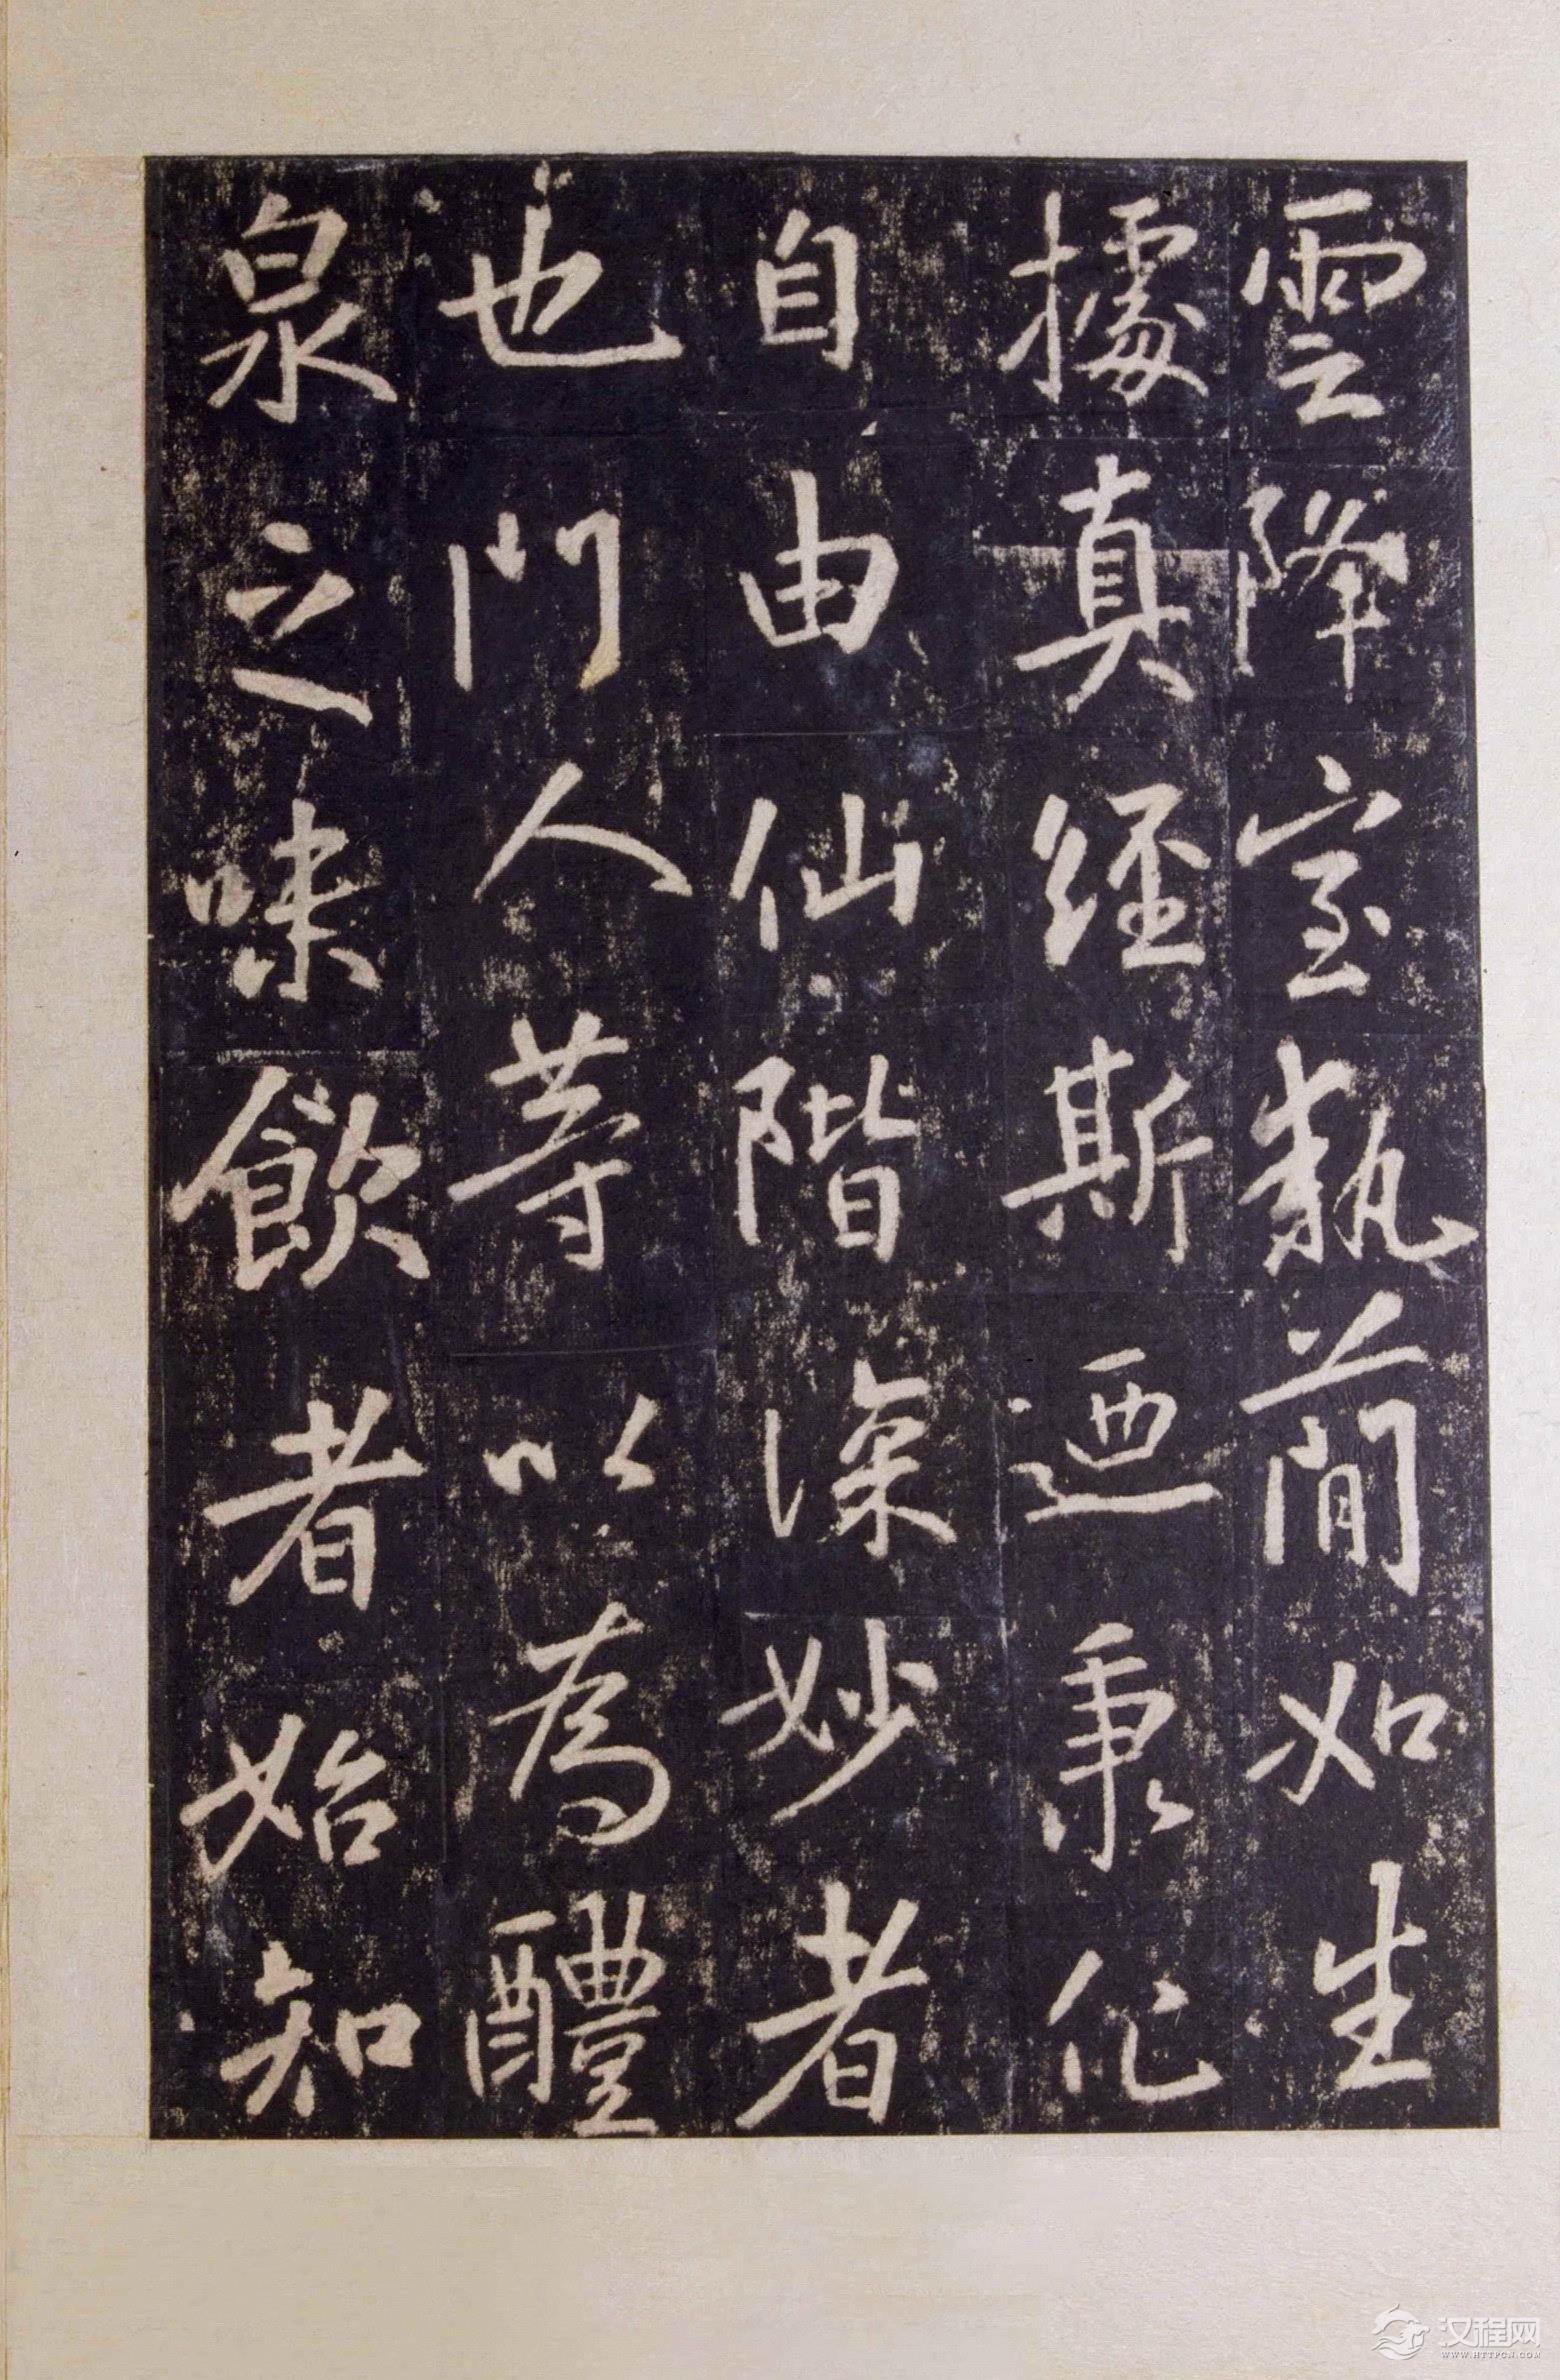 雲降室執簡如生
據真經斯迺秉化
自由仙階深妙者
也門人等以為醴
泉之味飲者始知
汉程网
WWW.HTTPCN.COM